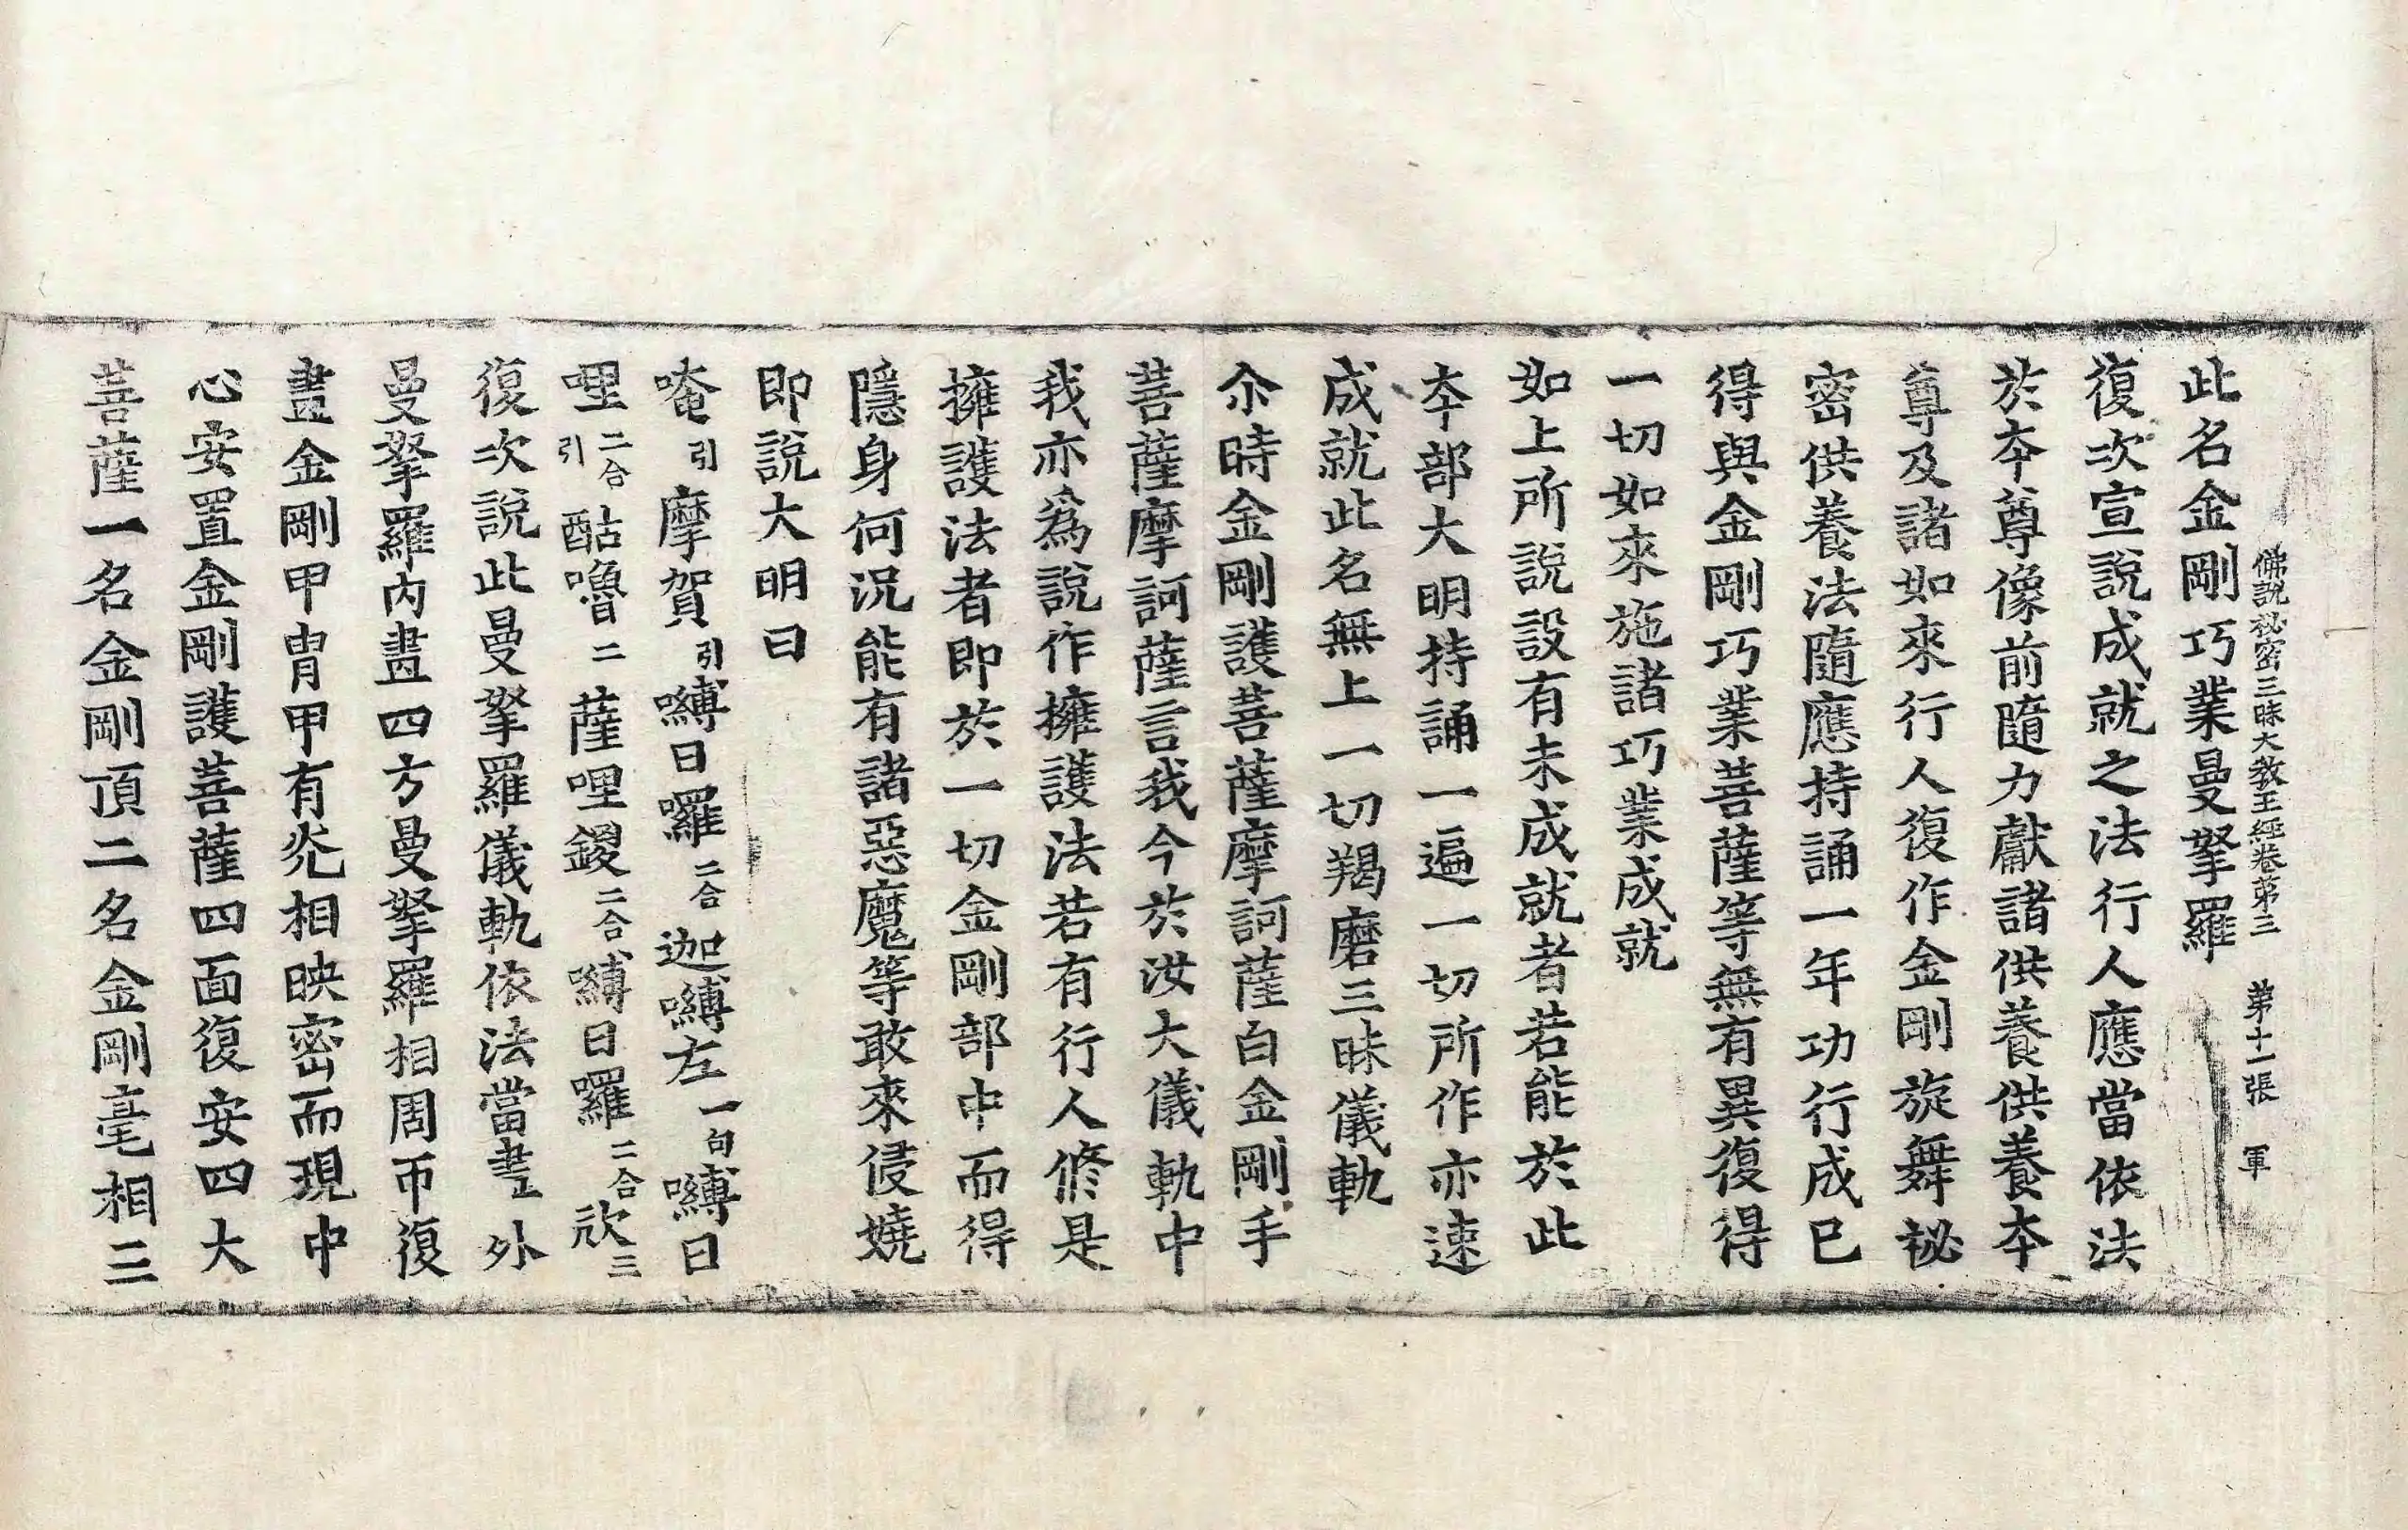 佛說秘密三昧大教王經卷第三　第十一張　軍
此名金剛巧業曼拏羅
復次宣說成就之法行人應當依法
於本尊像前隨力獻諸供養供養本
尊及諸如來行人復作金剛旋舞祕
密供養法隨應持誦一年功行成已
得與金剛巧業菩薩等無有異復得
一切如來施諸巧業成就
如上所說設有未成就者若能於此
本部大明持誦一遍一切所作亦速
成就此名無上一切羯磨三昧儀軌
尒時金剛護菩薩摩訶薩白金剛手
菩薩摩訶薩言我今於汝大儀軌中
我亦為說作擁護法若有行人修是
擁護法者即於一切金剛部中而得
隱身何況能有諸惡魔等敢來侵嬈
即說大明曰
唵引摩賀引嚩日囉二合迦嚩左一句嚩日
哩二合引酤嚕二薩哩鑁二合嚩日囉二合㰠三
復次說此曼拏羅儀軌依法當畫外
曼拏羅內畫四方曼拏羅相周帀復
畫金剛甲冑甲有光相映密而現中
心安置金剛護菩薩四面復安四大
菩薩一名金剛頂二名金剛毫相三